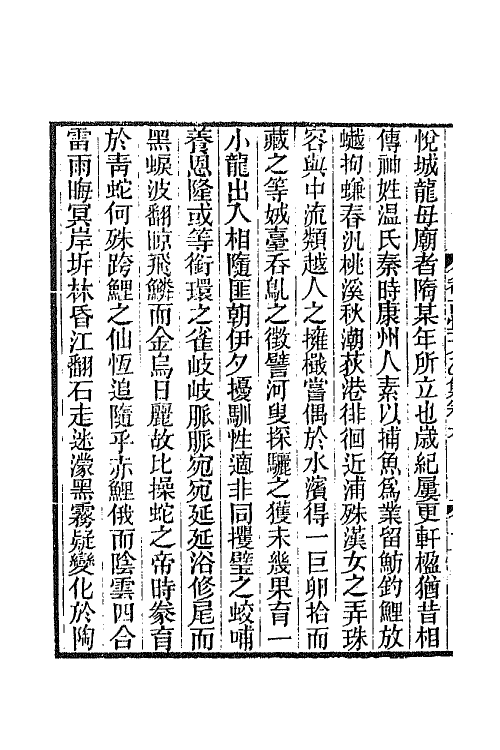 悅城龍母廟者隋某年所立也歲紀屢更軒楹猶昔相
傳神姓温氏秦時康州人素以捕魚爲業留魴釣鯉放
蠵拘蠊春汎桃溪秋潮荻港徘徊近浦殊漢女之弄珠
容與中流類越人之擁檝嘗偶於水濱得一巨卵拾而
藏之等娀臺吞鳦之徵譬河叟探驪之獲未幾果育一
小龍出入相隨匪朝伊夕擾馴性適非同攫璧之蛟哺
養恩隆或等銜環之雀岐岐脈脈宛宛延延浴修尾而
黑蜧波翻晾飛鱗而金烏日麗故比操蛇之帝時豢育
於靑蛇何殊跨鯉之仙恆追隨乎赤鯉俄而陰雲四合
雷雨晦冥岸坼林昏江翻石走迷濛黑霧疑變化於陶